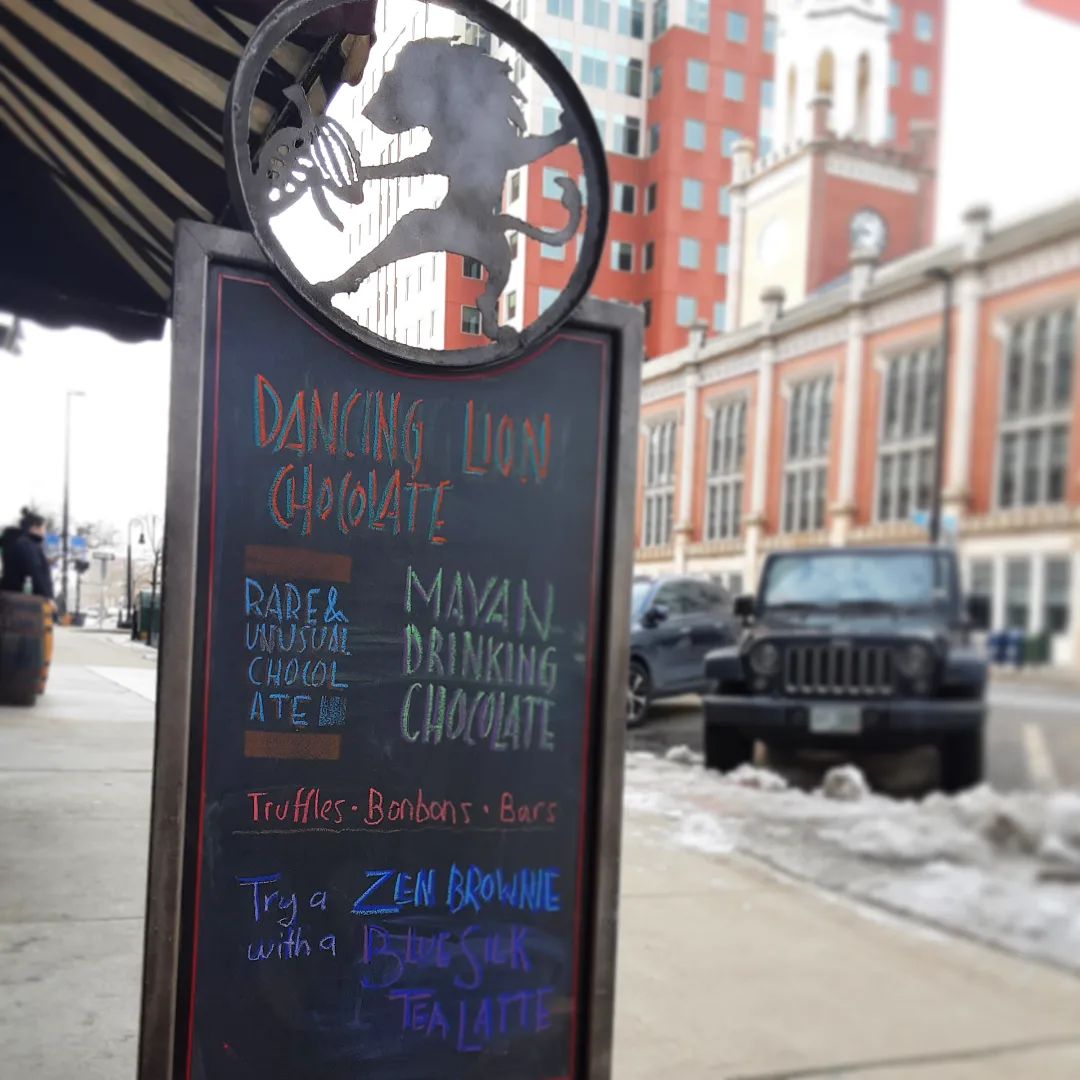 DANCING LION
CHOCOLATE
RARE &
UNUSUAL
CHOCOL
ATE
MAYAN
DRINKING
CHOCOLATE
Truffles · Bonbons · Bars
Try a ZEN BROWNIE
with a BLUE SILK
TEA LATTE